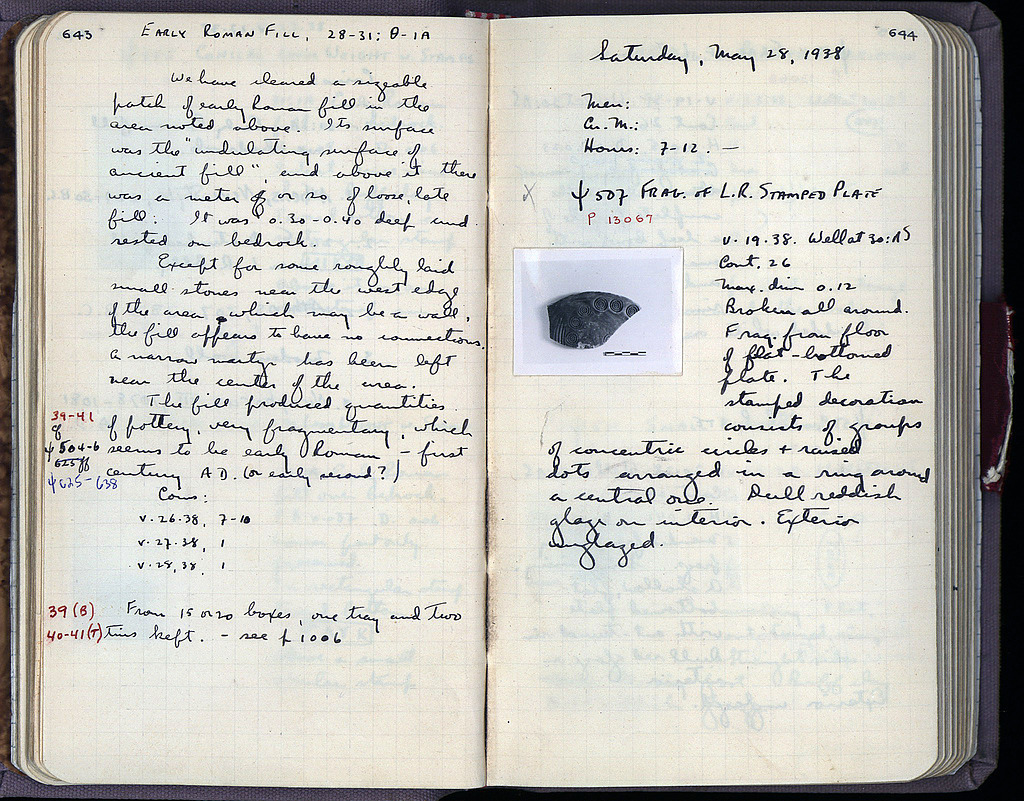 643
EARLY ROMAN FILL, 28-31; Θ-ΙΑ
We have cleared a sizeable
patch of early Roman fill in the
area noted above. Its surface
was the "undulating surface of
ancient fill", and above it there
was a meter or so of loose, late
fill. It was 0.30-0.40 deep and
rested on bedrock.
Except for some roughly laid
small stones near the west edge
of the area, which may be a wall,
the fill appears to have no connections.
A narrow martyr has been left
near the center of the area.
The fill produced quantities
39-41
of pottery, very fragmentary, which
cf
ψ 504-6
seems to be early Roman - first
625 ff
century A.D. (or early second?)
ψ 625-638
Coins:
V.26.38, 7-10
V.27.38, 1
V.28.38, 1
39 (B)
From 15 or 20 boxes, one tray and two
40-41 (T)
tins kept. - see p 1006
644
Saturday, May 28, 1938
Men:
Cr. M.:
Hours: 7-12. —
X
ψ 507 FRAG. OF L.R. STAMPED PLATE
P 13067
V.19.38. Well at 30:
Cont. 26
Max. dim 0.12
Broken all around.
Frag. from floor
of flat-bottomed
plate. The
stamped decoration
consists of groups
of concentric circles + raised
dots arranged in a ring around
a central one. Dull reddish
glaze on interior. Exterior
unglazed.